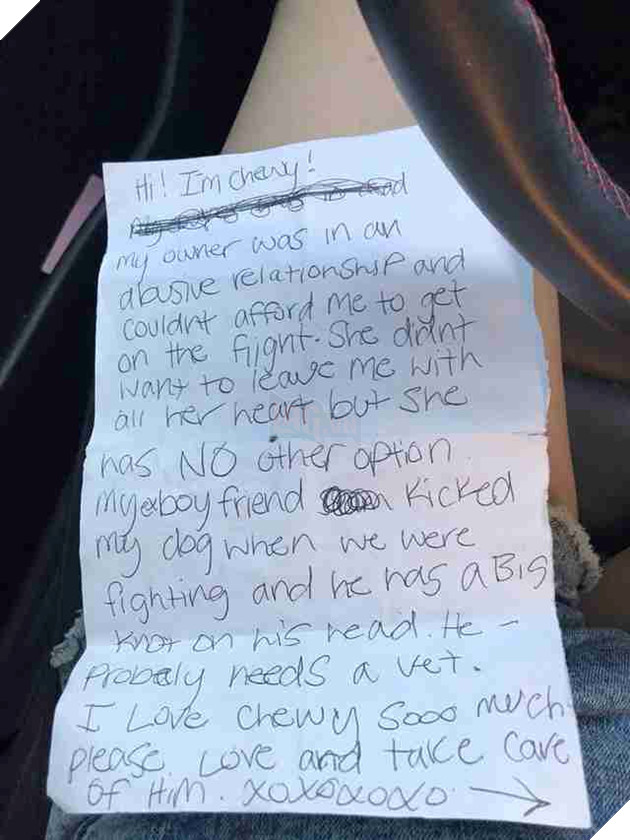 Hi! I'm chewy!
my owner was in an
abusive relationship and
couldnt afford me to get
on the flight. She didnt
want to leave me with
all her heart but she
has NO other option.
My ex boyfriend kicked
my dog when we were
fighting and he has a Big
knot on his head. He -
Probaly needs a vet.
I Love Chewy Sooo much
please Love and take care
OF HiM. XOXOXOXO →